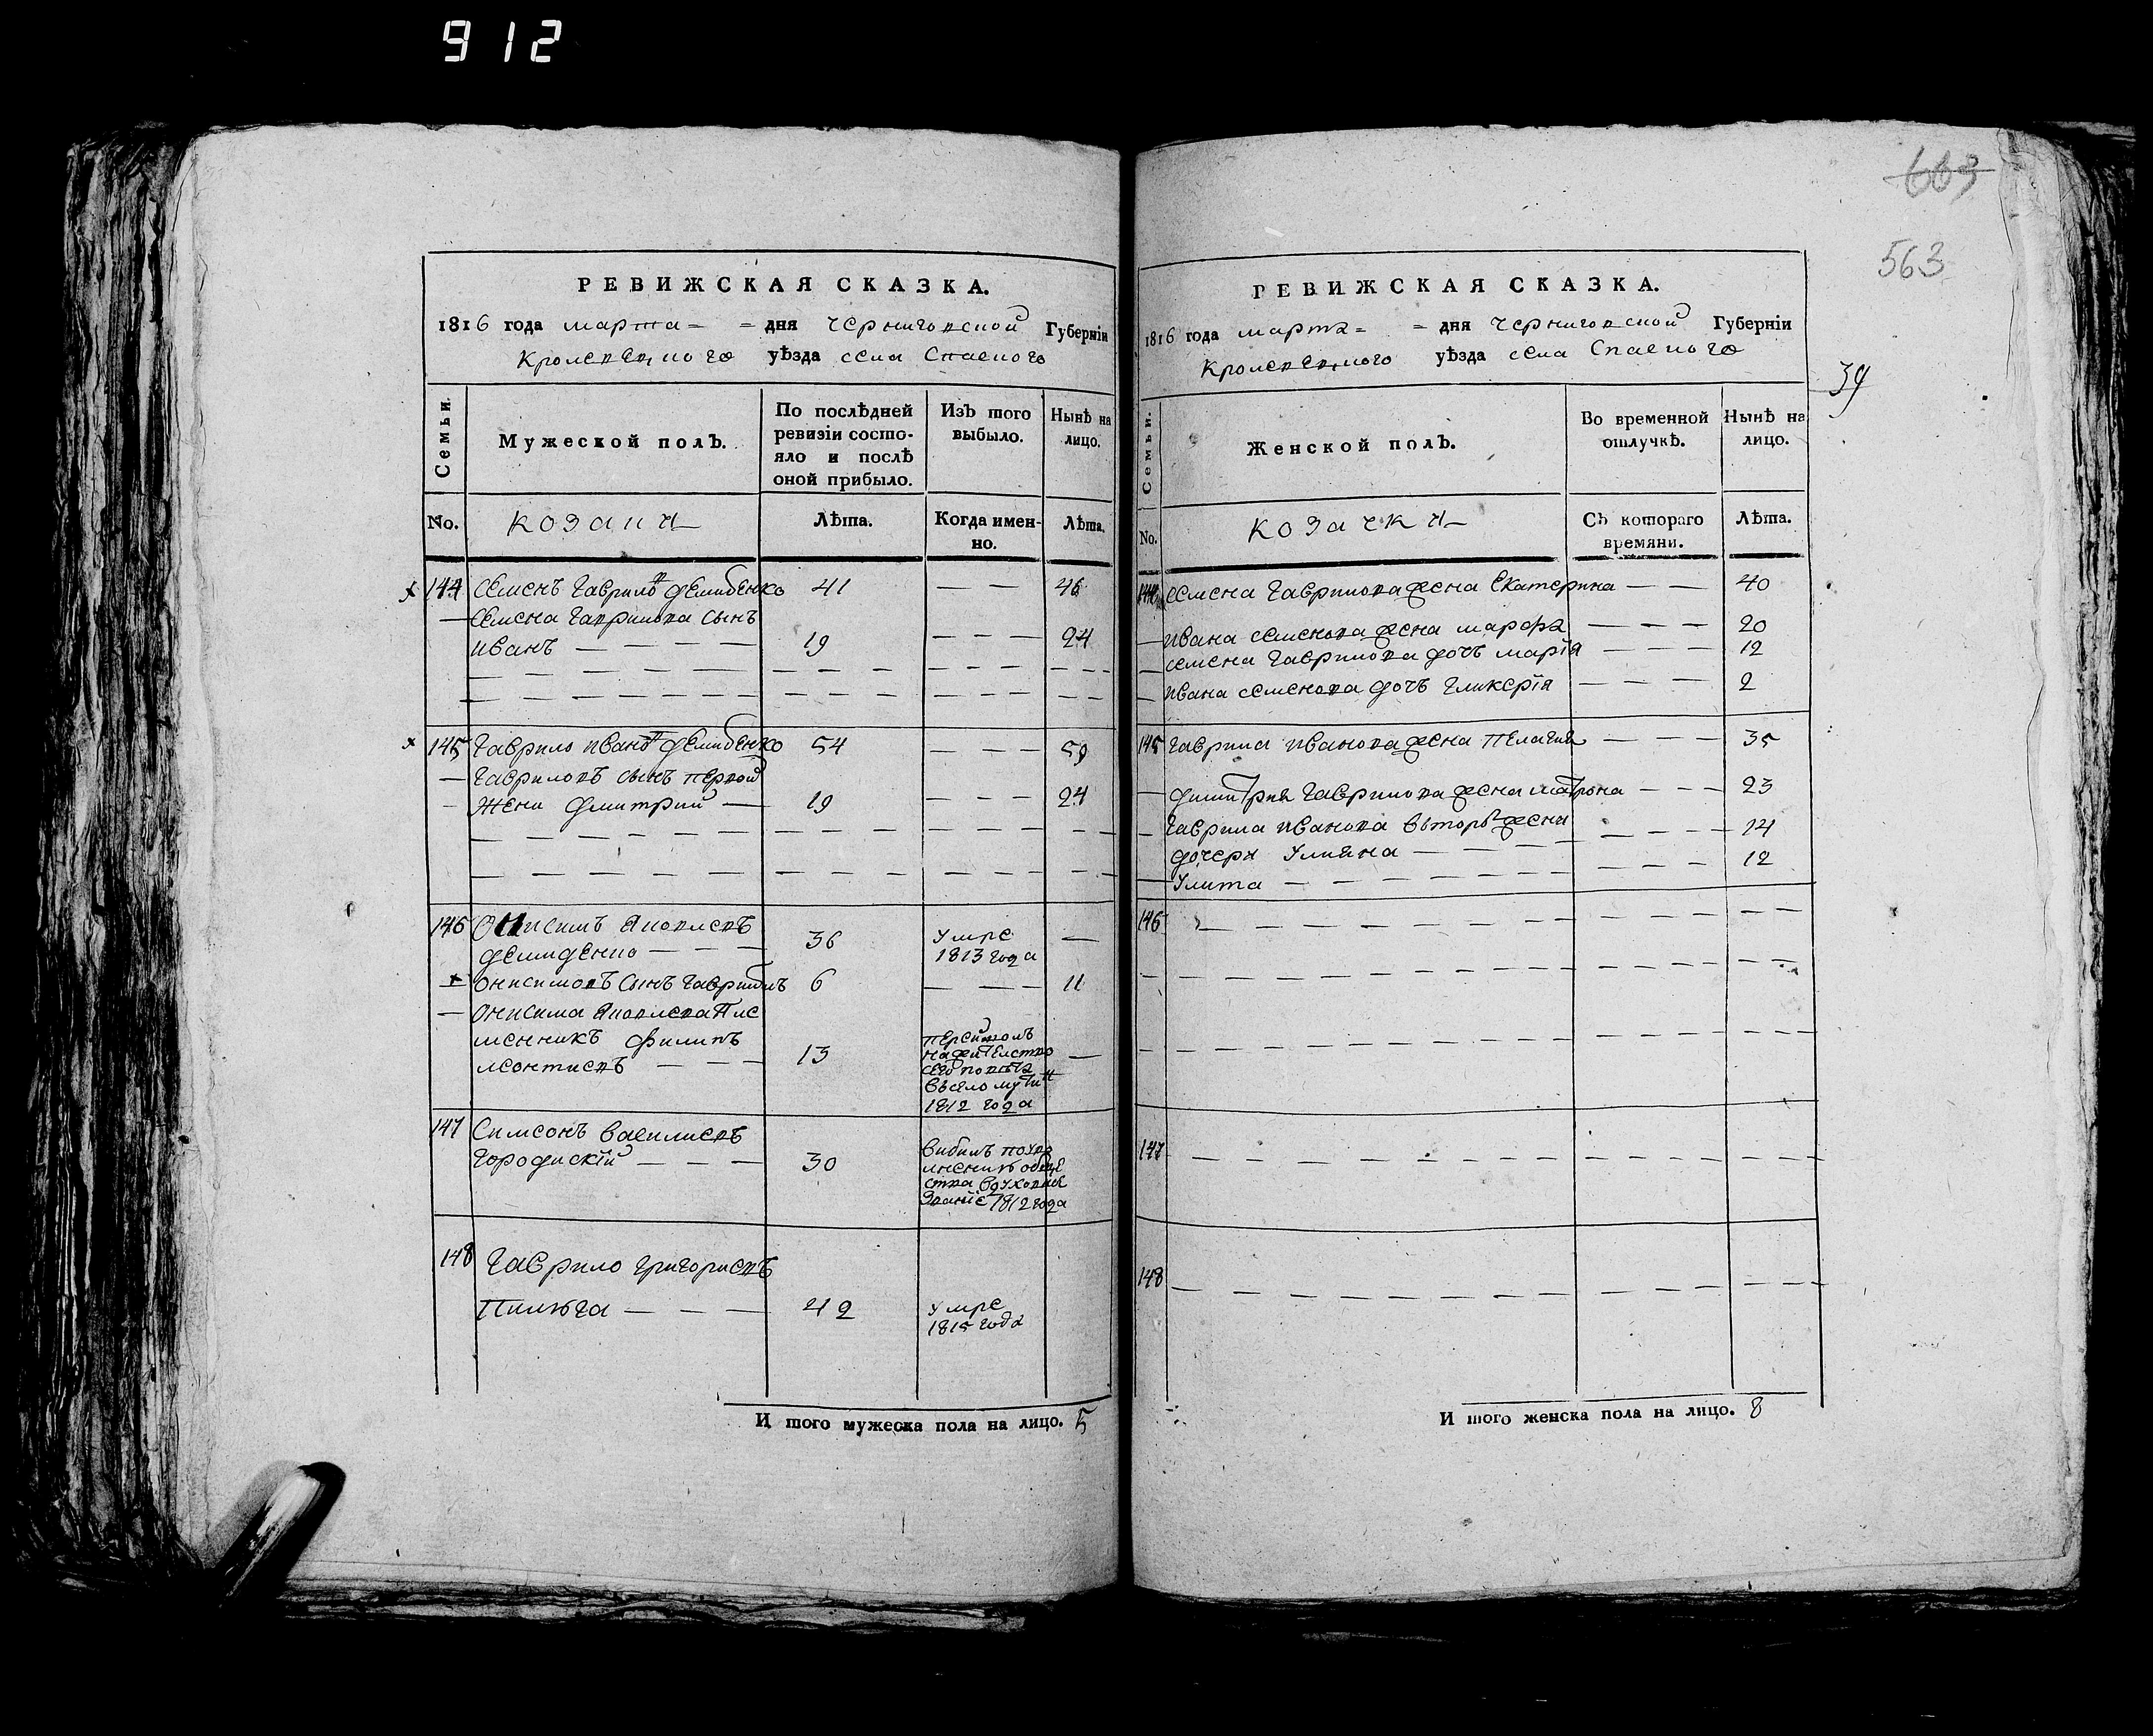 912
663
563
39
РЕВИЖСКАЯ СКАЗКА.
1816 года марта = = дня Черниговской Губернїи
Кролевецкого уѣзда села Спаского
Семьи.
Мужеской полъ.
По послѣдней ревизїи состо-
яло и послѣ
оной прибыло.
Изъ того выбыло.
Нынѣ на лицо.
No. козаки
Лѣта.
Когда имен-
но.
Лѣта.
144 Семенъ Гаврилов Демиденко 41 — — 46
— Семена Гаврилова сынъ
Иванъ — — — — 19 — — — 24
145 Гаврило Иванов Демиденко 54 — — — 59
— Гавриловъ сынъ первой
— жени Дмитрий — 19 — — — 24
146 Онисимъ Яковлевъ
Демиденко — — — 36 умре
1813 года —
— Онисимовъ сынъ Гавриилъ 6 — — — 11
— Онисима Яковлева пле
менникъ Филипъ
Леонтиевъ — — 13
1812 года —
147 Симеонъ Василиевъ
Городиский — — — 30
званїе 1812 года
148 Гаврило Григориевъ
Пилюга — — — 42 умре
1815 года
И того мужеска пола на лицо. 5
РЕВИЖСКАЯ СКАЗКА.
1816 года марта = = дня Черниговской Губернїи
Кролевецкого уѣзда села Спаского
Семьи.
Женской полъ.
Во временной
отлучкѣ.
Нынѣ на
лицо.
No. козачки
Съ котораго
времяни.
Лѣта.
144 Семена Гаврилова жена Екатерина — — 40
— Ивана Семенова жена Марфа — — — 20
— Семена Гаврилова дочъ Марїя — — — 12
— Ивана Семенова дочъ Гликерїя — — — 2
145 Гаврила Иванова жена Пелагия — — — 35
— Димитрия Гаврилова жена Матрона — — — 23
— Гаврила Иванова вторы жени
дочери Улияна — — — — 14
— Улита — — — — — 12
146
147
148
И того женска пола на лицо. 8